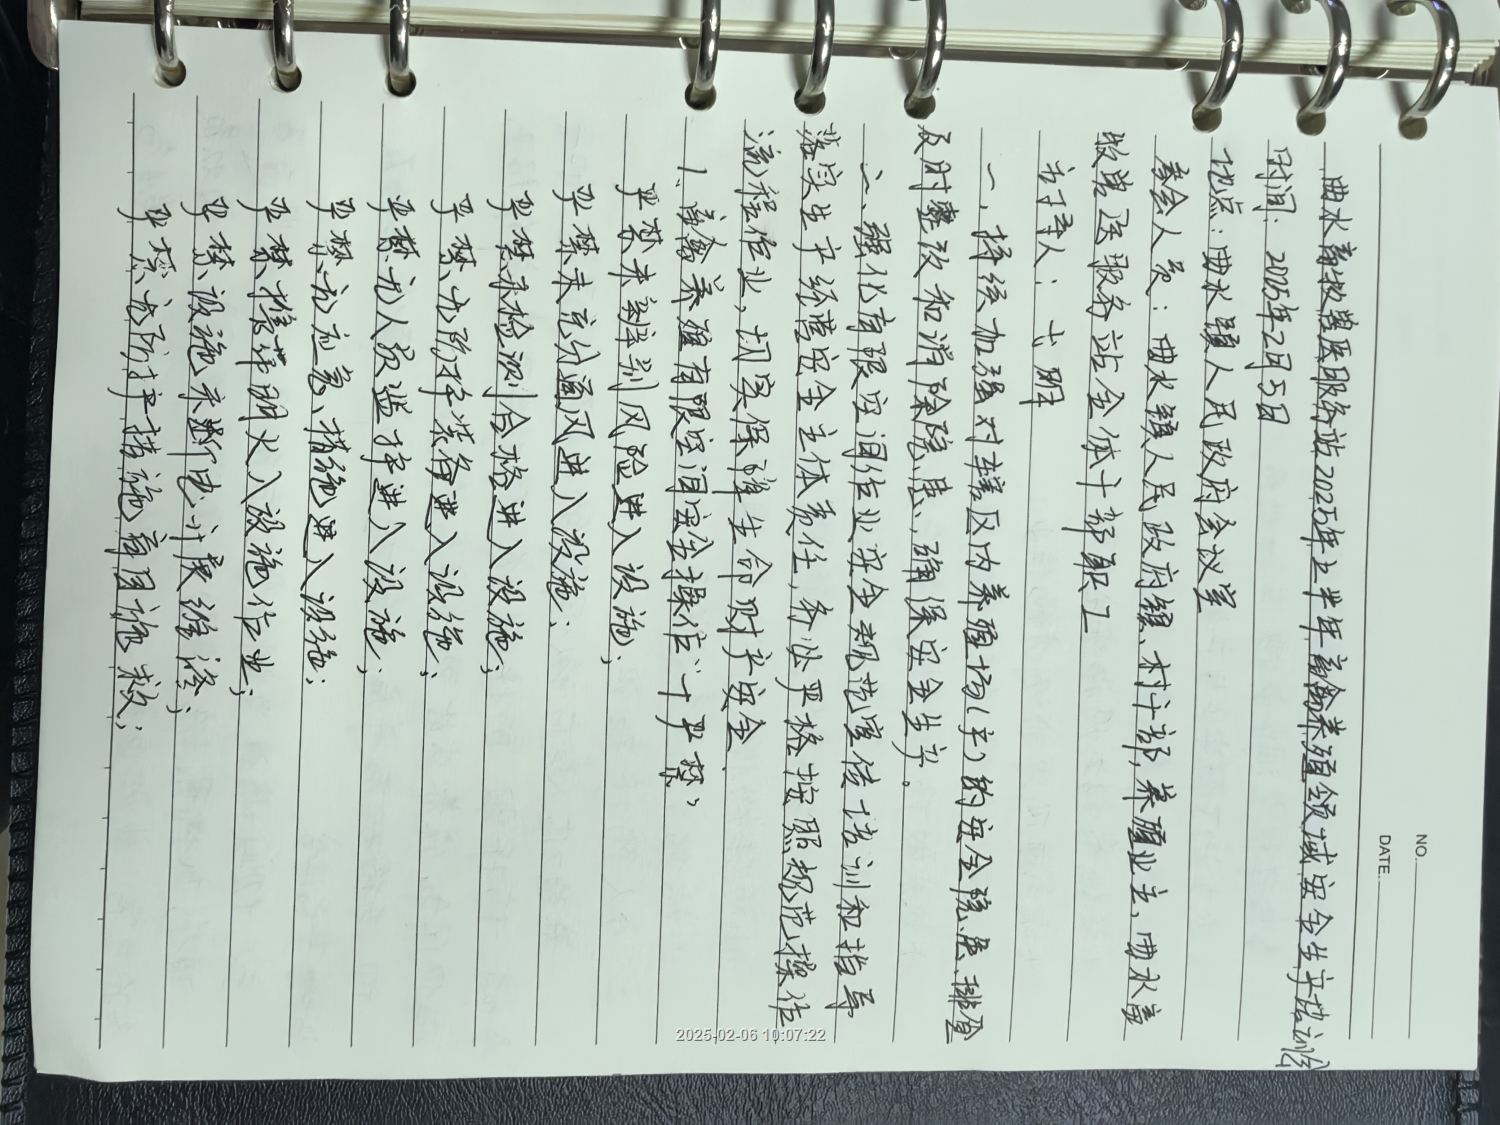 NO.
DATE.
曲水畜牧兽医服务站2025年上半年畜禽养殖领域安全生产培训会
时间：2025年2月5日
地点：曲水镇人民政府会议室
参会人员：曲水镇人民政府镇、村干部，养殖业主、曲水畜
牧兽医服务站全体干部职工
主持人：
一、持续加强对辖区内养殖场(户)的安全隐患、排查
及时整改和消除隐患、确保安全生产。
二、强化有限空间作业安全规范宣传培训和指导
落实生产经营安全主体责任，务必严格按照规范操作
流程作业，切实保障生命财产安全.
1、畜禽养殖有限空间安全操作“十严禁”
严禁未辨别风险进入设施；
严禁未充分通风进入设施；
严禁未检测合格进入设施；
严禁无防护装备进入设施；
严禁无人员监护进入设施；
严禁无应急措施进入设施；
严禁携带明火入设施作业；
严禁设施未断电开展维修；
严禁无防护措施盲目施救；
2025-02-06 10:07:22